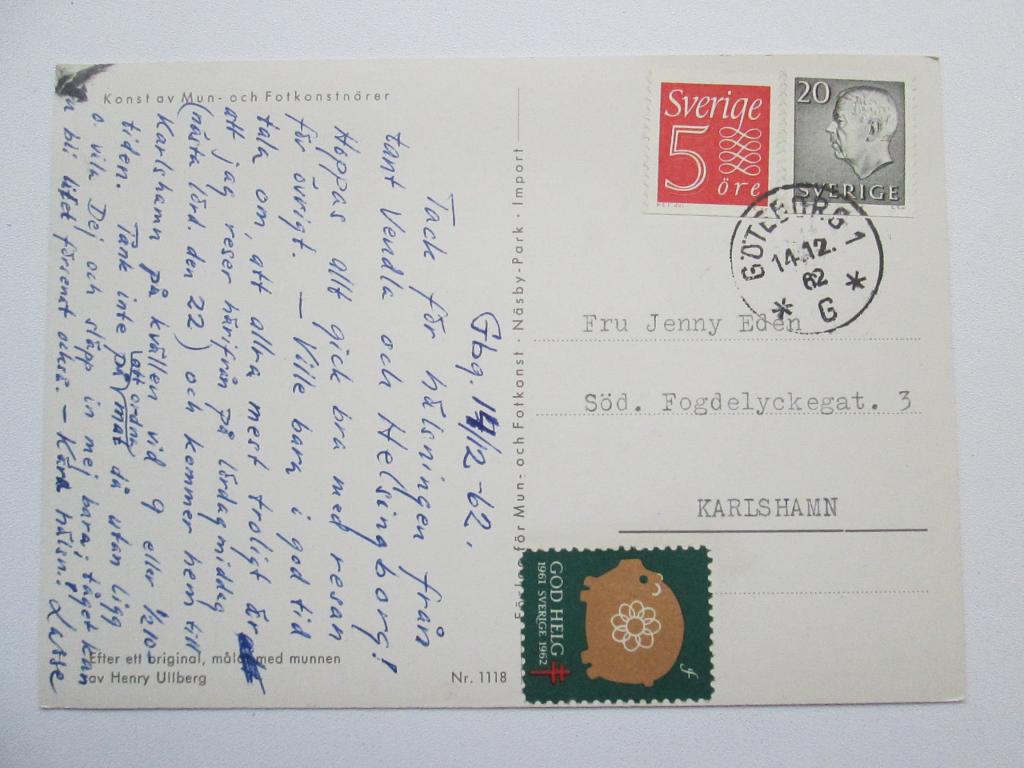 Konst av Mun- och Fotkonstnärer
Gbg. 14/12-62.
Tack för hälsningen från
tant Vendla och Helsingborg!
Hoppas allt gick bra med resan
för övrigt. — Ville bara i god tid
tala om, att allra mest troligt är
att jag reser härifrån på lördagmiddag
(nästa lörd. den 22) och kommer hem till
Karlshamn på kvällen vid 9 eller 1/2 10
tiden. Tänk inte på att ordna mat då utan ligg
o. vila Dej och släpp in mej bara; tåget kan
bli litet försenat också. — Kära hälsn.! Lasse
Efter ett original, målat med munnen
av Henry Ullberg
Nr. 1118
för Mun- och Fotkonst · Näsby-Park · Import
Sverige
5
öre
20
SVERIGE
GÖTEBORG 1
14.12.
62
* G *
Fru Jenny Edén
Söd. Fogdelyckegat. 3
KARLSHAMN
GOD HELG
1961 SVERIGE 1962